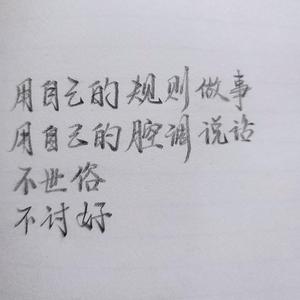 用自己的规则做事
用自己的腔调说话
不世俗
不讨好